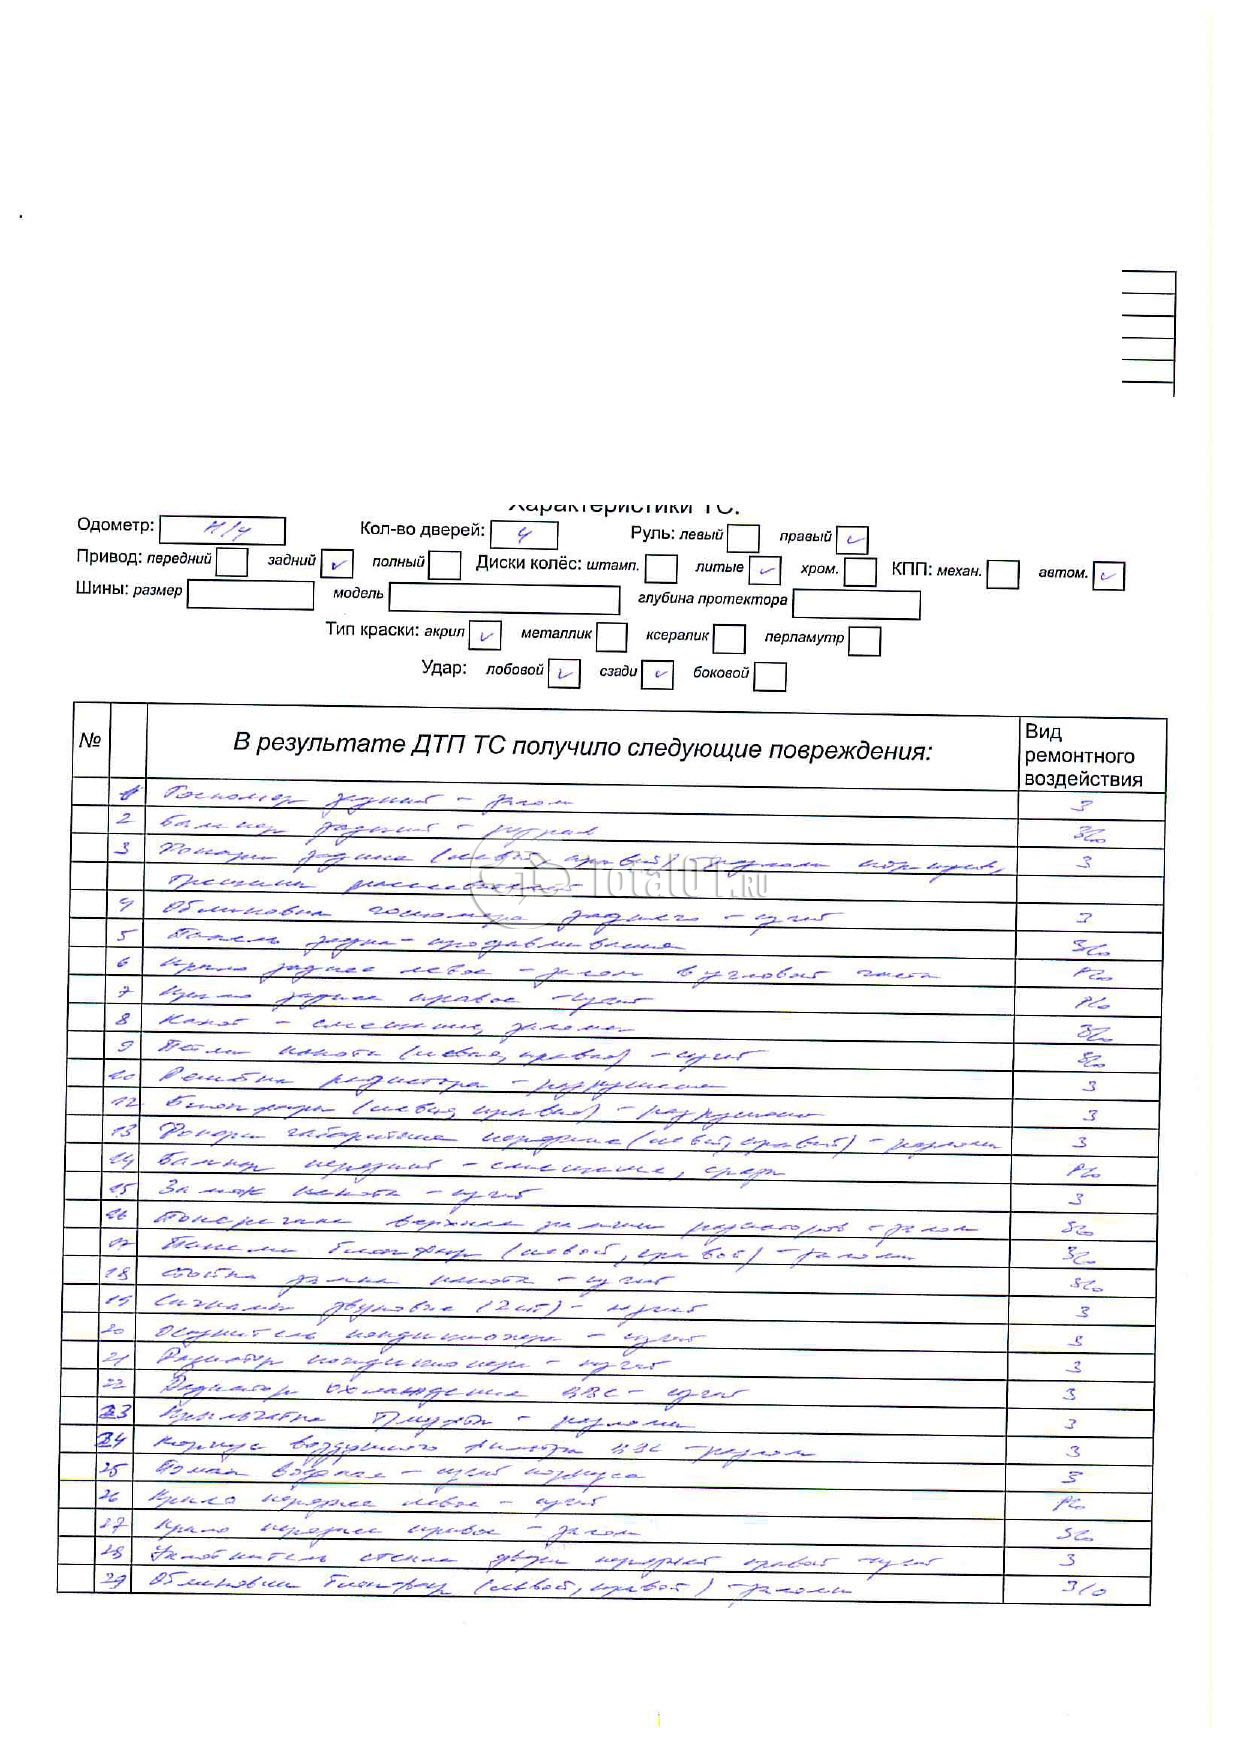 Характеристики ТС:
Одометр: н/у Кол-во дверей: 4 Руль: левый правый ✓
Привод: передний задний ✓ полный Диски колёс: штамп. литые ✓ хром. КПП: механ. автом. ✓
Шины: размер модель глубина протектора
Тип краски: акрил ✓ металлик ксералик перламутр
Удар: лобовой ✓ сзади ✓ боковой
№ В результате ДТП ТС получило следующие повреждения: Вид ремонтного воздействия
1 Госномер задний - залом З
2 Бампер задний - З/о
3 Фонари задние (левый, правый) З
Трещины рассеивателей
4 Облицовка госномера заднего - изгиб З
5 Панель задка - продавливание З/о
6 Крыло заднее левое - залом в угловой части Р/о
7 Крыло заднее правое - изгиб Р/о
8 Капот - смещение, заломы З/о
9 Петли капота (левая, правая) - изгиб З/о
10 Решётка радиатора - разрушение З
12 Блок фары (левая, правая) - разрушены З
13 Фонари габаритные передние (левый, правый) - разломы З
14 Бампер передний - смещение, Р/о
15 Замок капота - изгиб З
16 Поперечина верхняя рамки радиаторов - залом З/о
17 Панели блокфар (левой, правой) - заломы З/о
18 Стойка замка капота - изгиб З/о
19 Сигналы звуковые (2шт) - изгиб З
20 Осушитель кондиционера - изгиб З
21 Радиатор кондиционера - изгиб З
22 Радиатор охлаждения ДВС - изгиб З
23 Крыльчатка - разломы З
24 Корпус воздушного фильтра ДВС - разлом З
25 Помпа водяная - изгиб корпуса З
26 Крыло переднее левое - изгиб Р/о
27 Крыло переднее правое - залом З/о
28 Уплотнитель стекла двери передней правой - изгиб З
29 Облицовки блокфар (левой, правой) - заломы З/о
Total01.RU